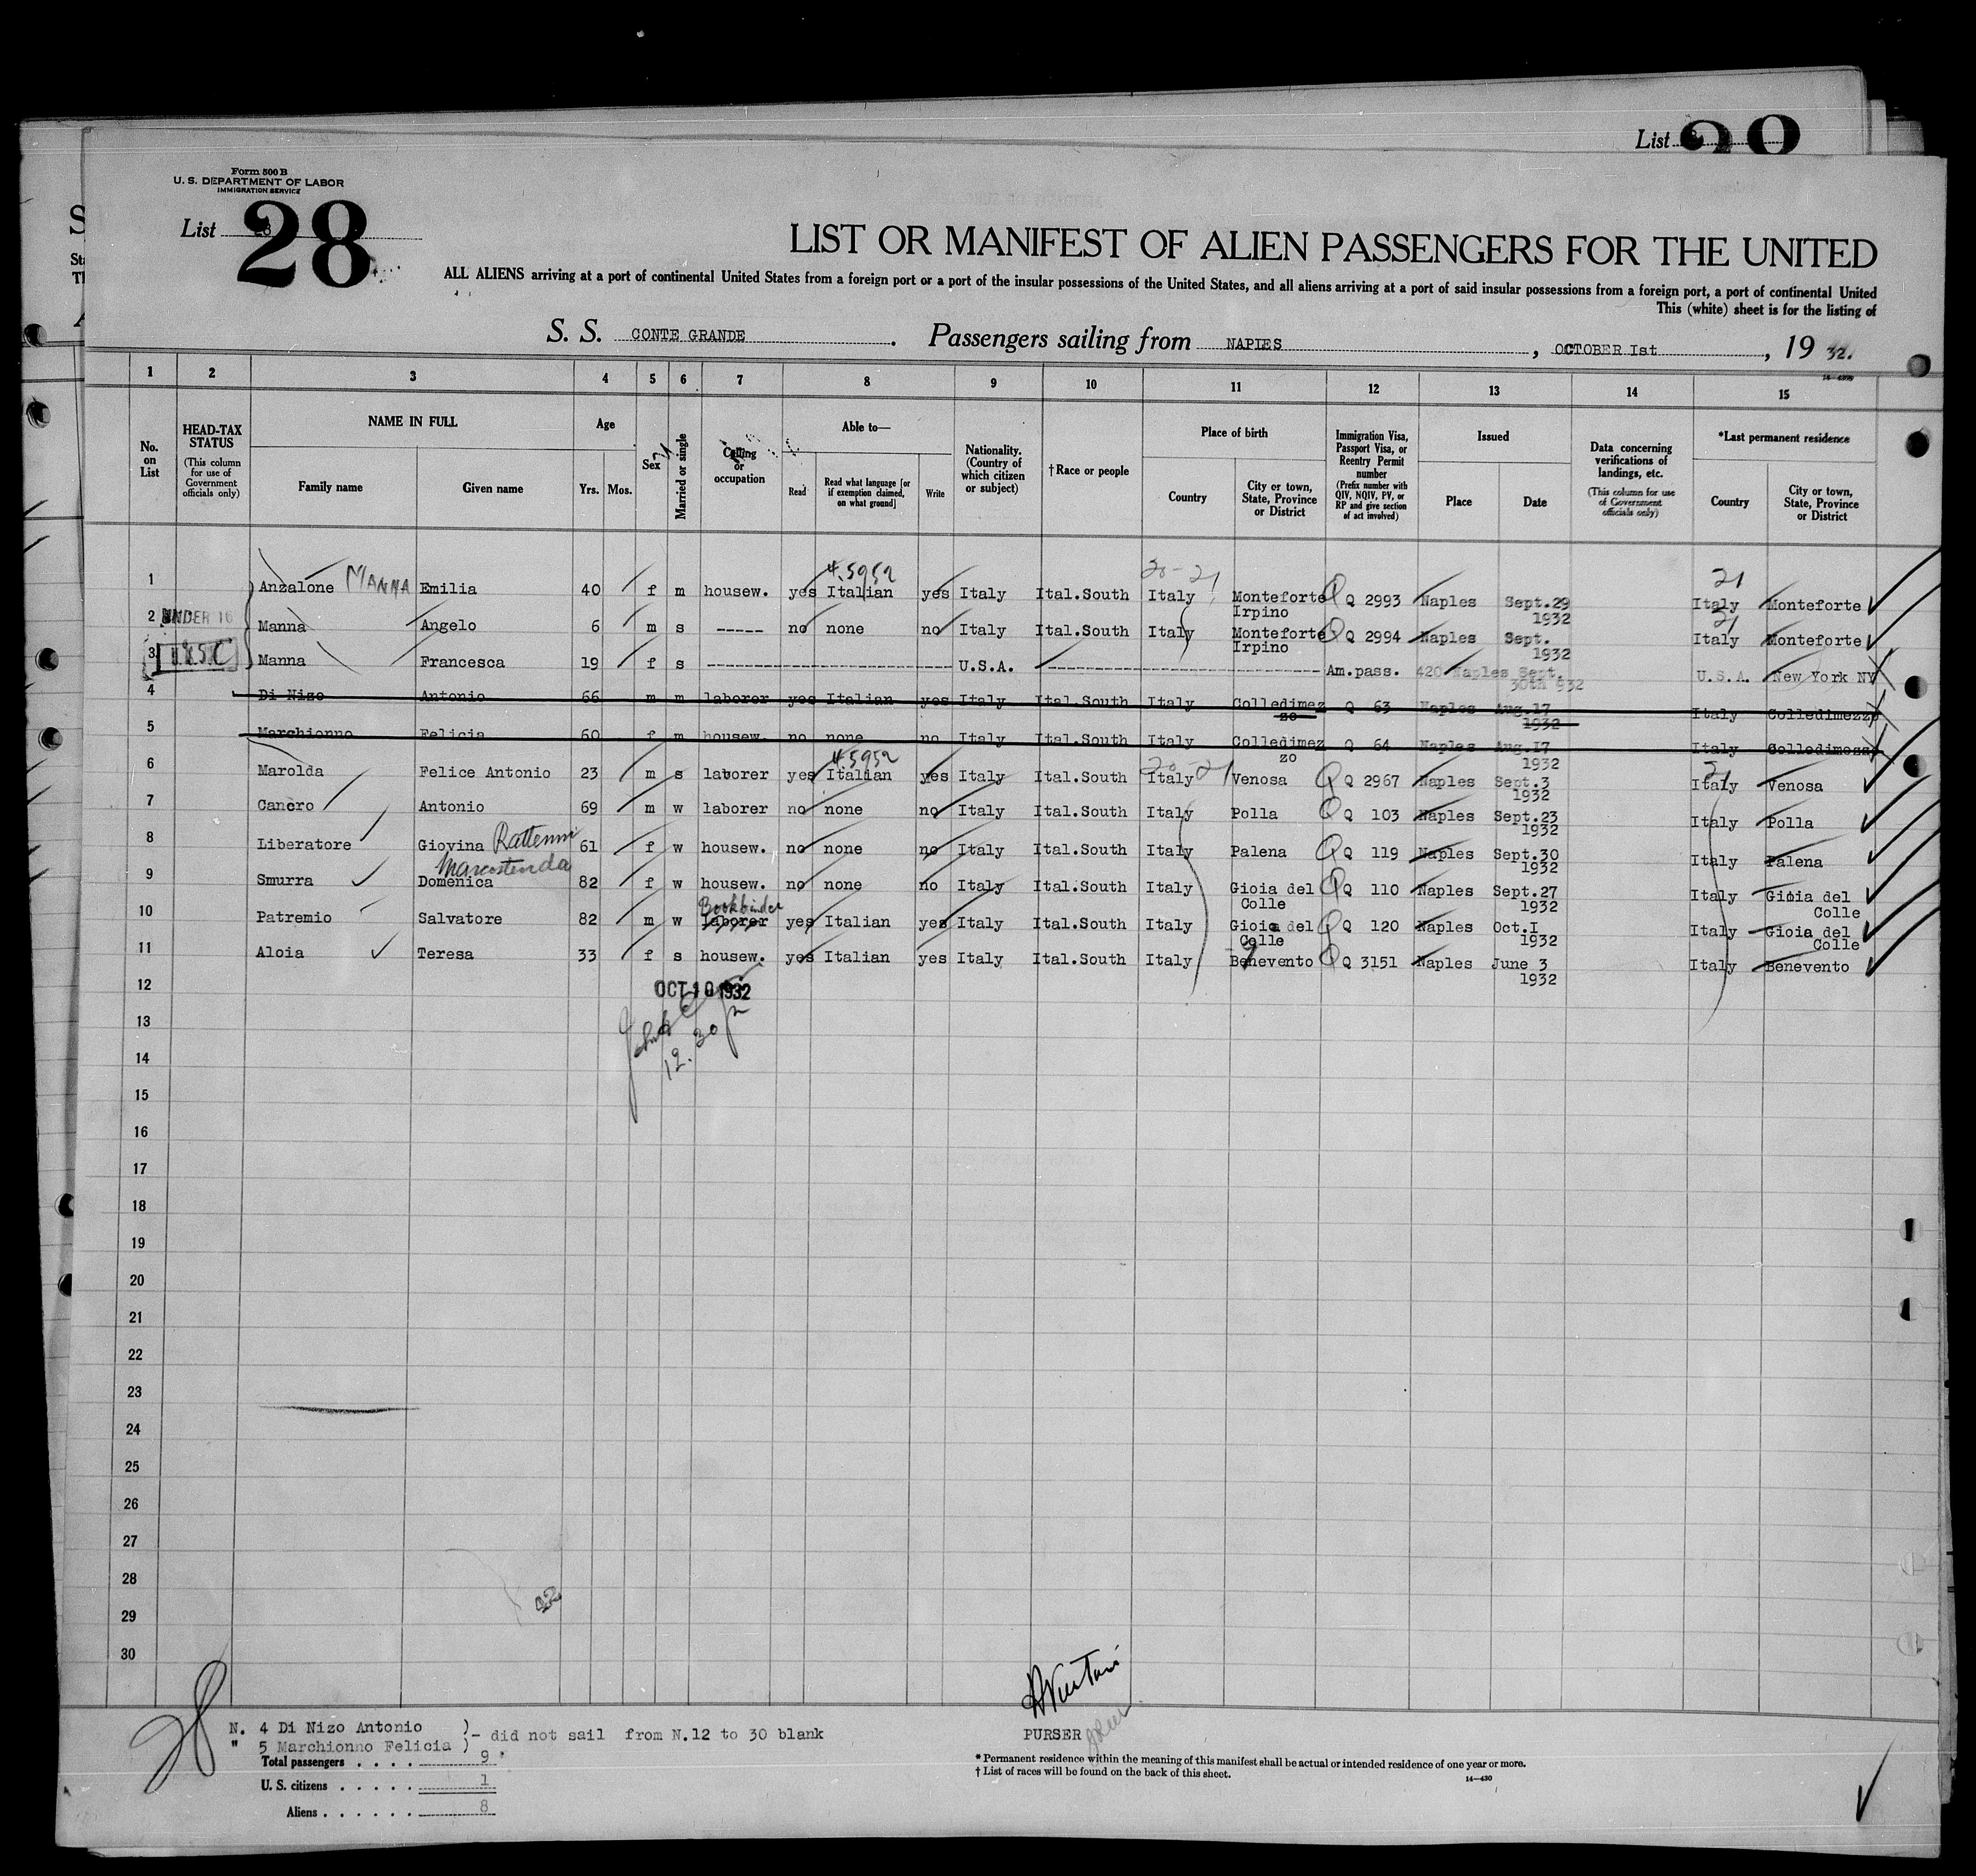 List 28
Form 500 B
U. S. DEPARTMENT OF LABOR
IMMIGRATION SERVICE
List 28
LIST OR MANIFEST OF ALIEN PASSENGERS FOR THE UNITED
ALL ALIENS arriving at a port of continental United States from a foreign port or a port of the insular possessions of the United States, and all aliens arriving at a port of said insular possessions from a foreign port, a port of continental United
This (white) sheet is for the listing of
S. S. CONTE GRANDE. Passengers sailing from NAPLES, OCTOBER Ist, 19 32.
1 2 3 4 5 6 7 8 9 10 11 12 13 14 15
No. on List
HEAD-TAX STATUS (This column for use of Government officials only)
NAME IN FULL
Family name Given name
Age
Yrs. Mos.
Sex
Married or single
Calling or occupation
Able to—
Read
Read what language [or if exemption claimed, on what ground]
Write
Nationality. (Country of which citizen or subject)
†Race or people
Place of birth
Country
City or town, State, Province or District
Immigration Visa, Passport Visa, or Reentry Permit number (Prefix number with QIV, NQIV, PV, or RP and give section of act involved)
Issued
Place Date
Data concerning verifications of landings, etc. (This column for use of Government officials only)
*Last permanent residence
Country
City or town, State, Province or District
45952 20-21 21
1 Anzalone MANNA Emilia 40 f m housew. yes Italian yes Italy Ital.South Italy Monteforte Irpino Q Q 2993 Naples Sept.29 1932 Italy Monteforte
2 UNDER 16 Manna Angelo 6 m s ----- no none no Italy Ital.South Italy Monteforte Irpino Q Q 2994 Naples Sept. 1932 Italy Monteforte
3 USC Manna Francesca 19 f s U.S.A. Am.pass. 420 Naples Sept. 30th 932 U.S.A. New York NY
4 Di Nizo Antonio 66 m m laborer yes Italian yes Italy Ital.South Italy Colledimezzo Q 63 Naples Aug.17 1932 Italy Colledimezzo
5 Marchionno Felicia 60 f m housew. no none no Italy Ital.South Italy Colledimezzo Q 64 Naples Aug.17 1932 Italy Colledimezzo
45952 20-21 21
6 Marolda Felice Antonio 23 m s laborer yes Italian yes Italy Ital.South Italy Venosa Q Q 2967 Naples Sept.3 1932 Italy Venosa
7 Canero Antonio 69 m w laborer no none no Italy Ital.South Italy Polla Q Q 103 Naples Sept.23 1932 Italy Polla
8 Liberatore Giovina 61 f w housew. no none no Italy Ital.South Italy Palena Q Q 119 Naples Sept.30 1932 Italy Palena
9 Smurra Domenica 82 f w housew. no none no Italy Ital.South Italy Gioia del Colle Q Q 110 Naples Sept.27 1932 Italy Gioia del Colle
10 Patremio Salvatore 82 m w Bookbinder laborer yes Italian yes Italy Ital.South Italy Gioia del Colle Q Q 120 Naples Oct.I 1932 Italy Gioia del Colle
11 Aloia Teresa 33 f s housew. yes Italian yes Italy Ital.South Italy Benevento Q Q 3151 Naples June 3 1932 Italy Benevento
12 OCT 10 1932
13
12.30
14
15
16
17
18
19
20
21
22
23
24
25
26
27
28
29
30
28
N. 4 Di Nizo Antonio )
" 5 Marchionno Felicia ) - did not sail from N.12 to 30 blank
PURSER
Total passengers . . . . 9
U. S. citizens . . . . . 1
Aliens . . . . . . 8
* Permanent residence within the meaning of this manifest shall be actual or intended residence of one year or more.
† List of races will be found on the back of this sheet.
14—430